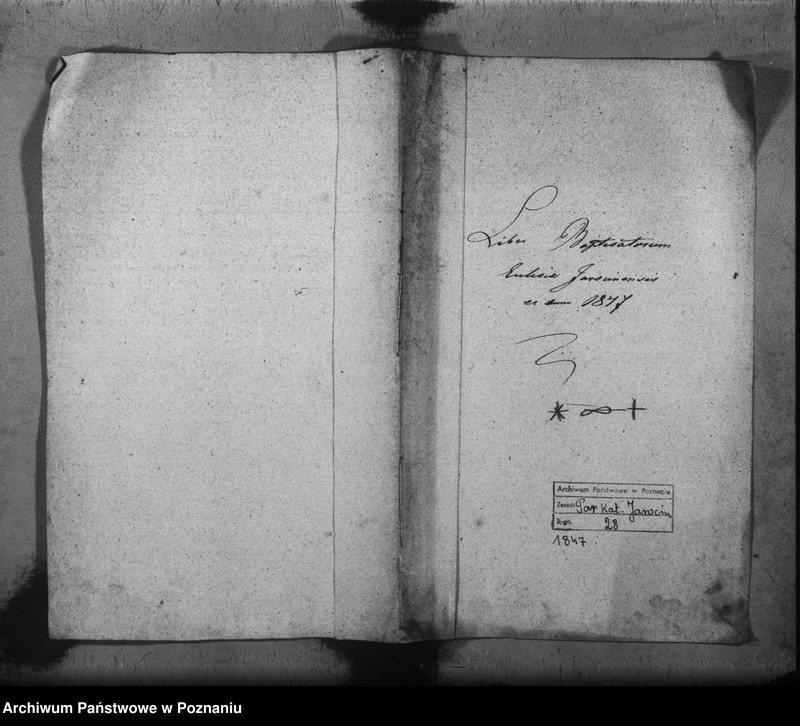 Liber Baptisatorum
Eclesie Jarocinensis
ex anno 1847
Archiwum Państwowe w Poznaniu
Zespół Par Kat. Jarocin
Sygn. 28
1847
Archiwum Państwowe w Poznaniu